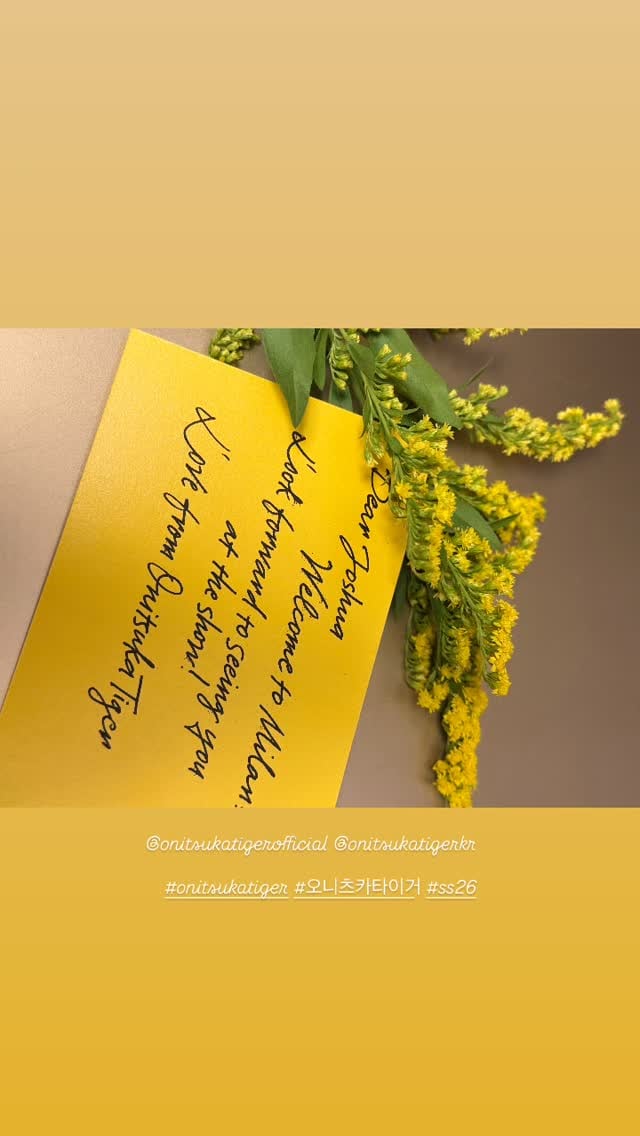 Dear Joshua
Welcome to Milan.
Look forward to seeing you
at the show!
Love from Onitsuka Tiger
@onitsukatigerofficial @onitsukatigerkr
#onitsukatiger #오니츠카타이거 #ss26